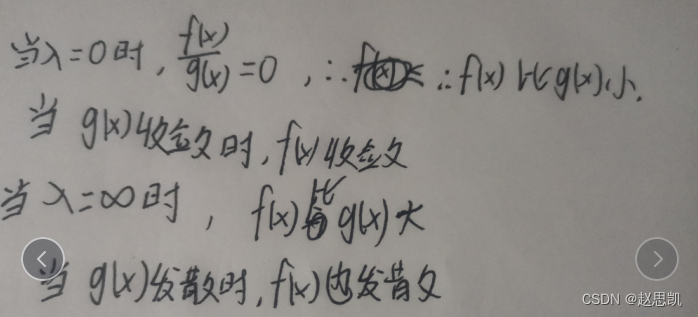 当λ=0时, f(x)/g(x)=0, ∴ ∴f(x)比g(x)小.
当g(x)收敛时,f(x)收敛
当λ=∞时, f(x)比g(x)大
当g(x)发散时,f(x)也发散
CSDN @赵思凯